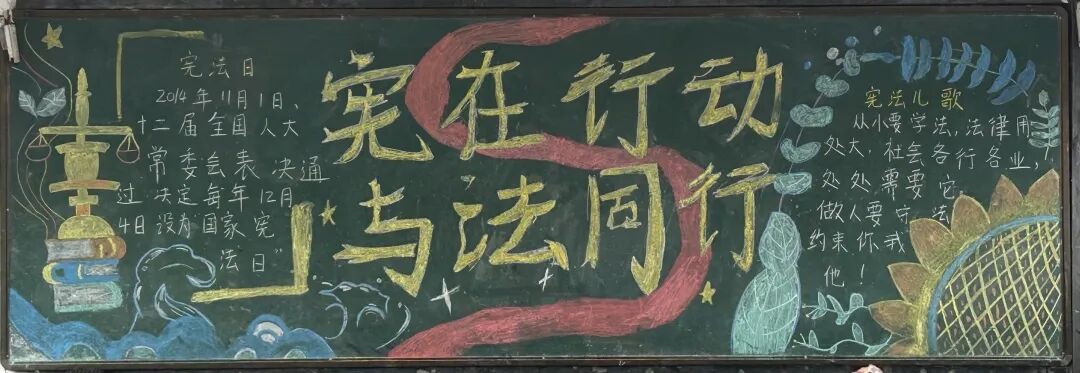 宪法日
2014年11月1日、
十二届全国人大
常委会表决通
过决定每年12月
4日没有国家宪
法日"
宪在行动
与法同行
宪法儿歌
从小要学法,法律用
处大,社会各行各业,
处处需要它
做人要守法
约束你我
他!